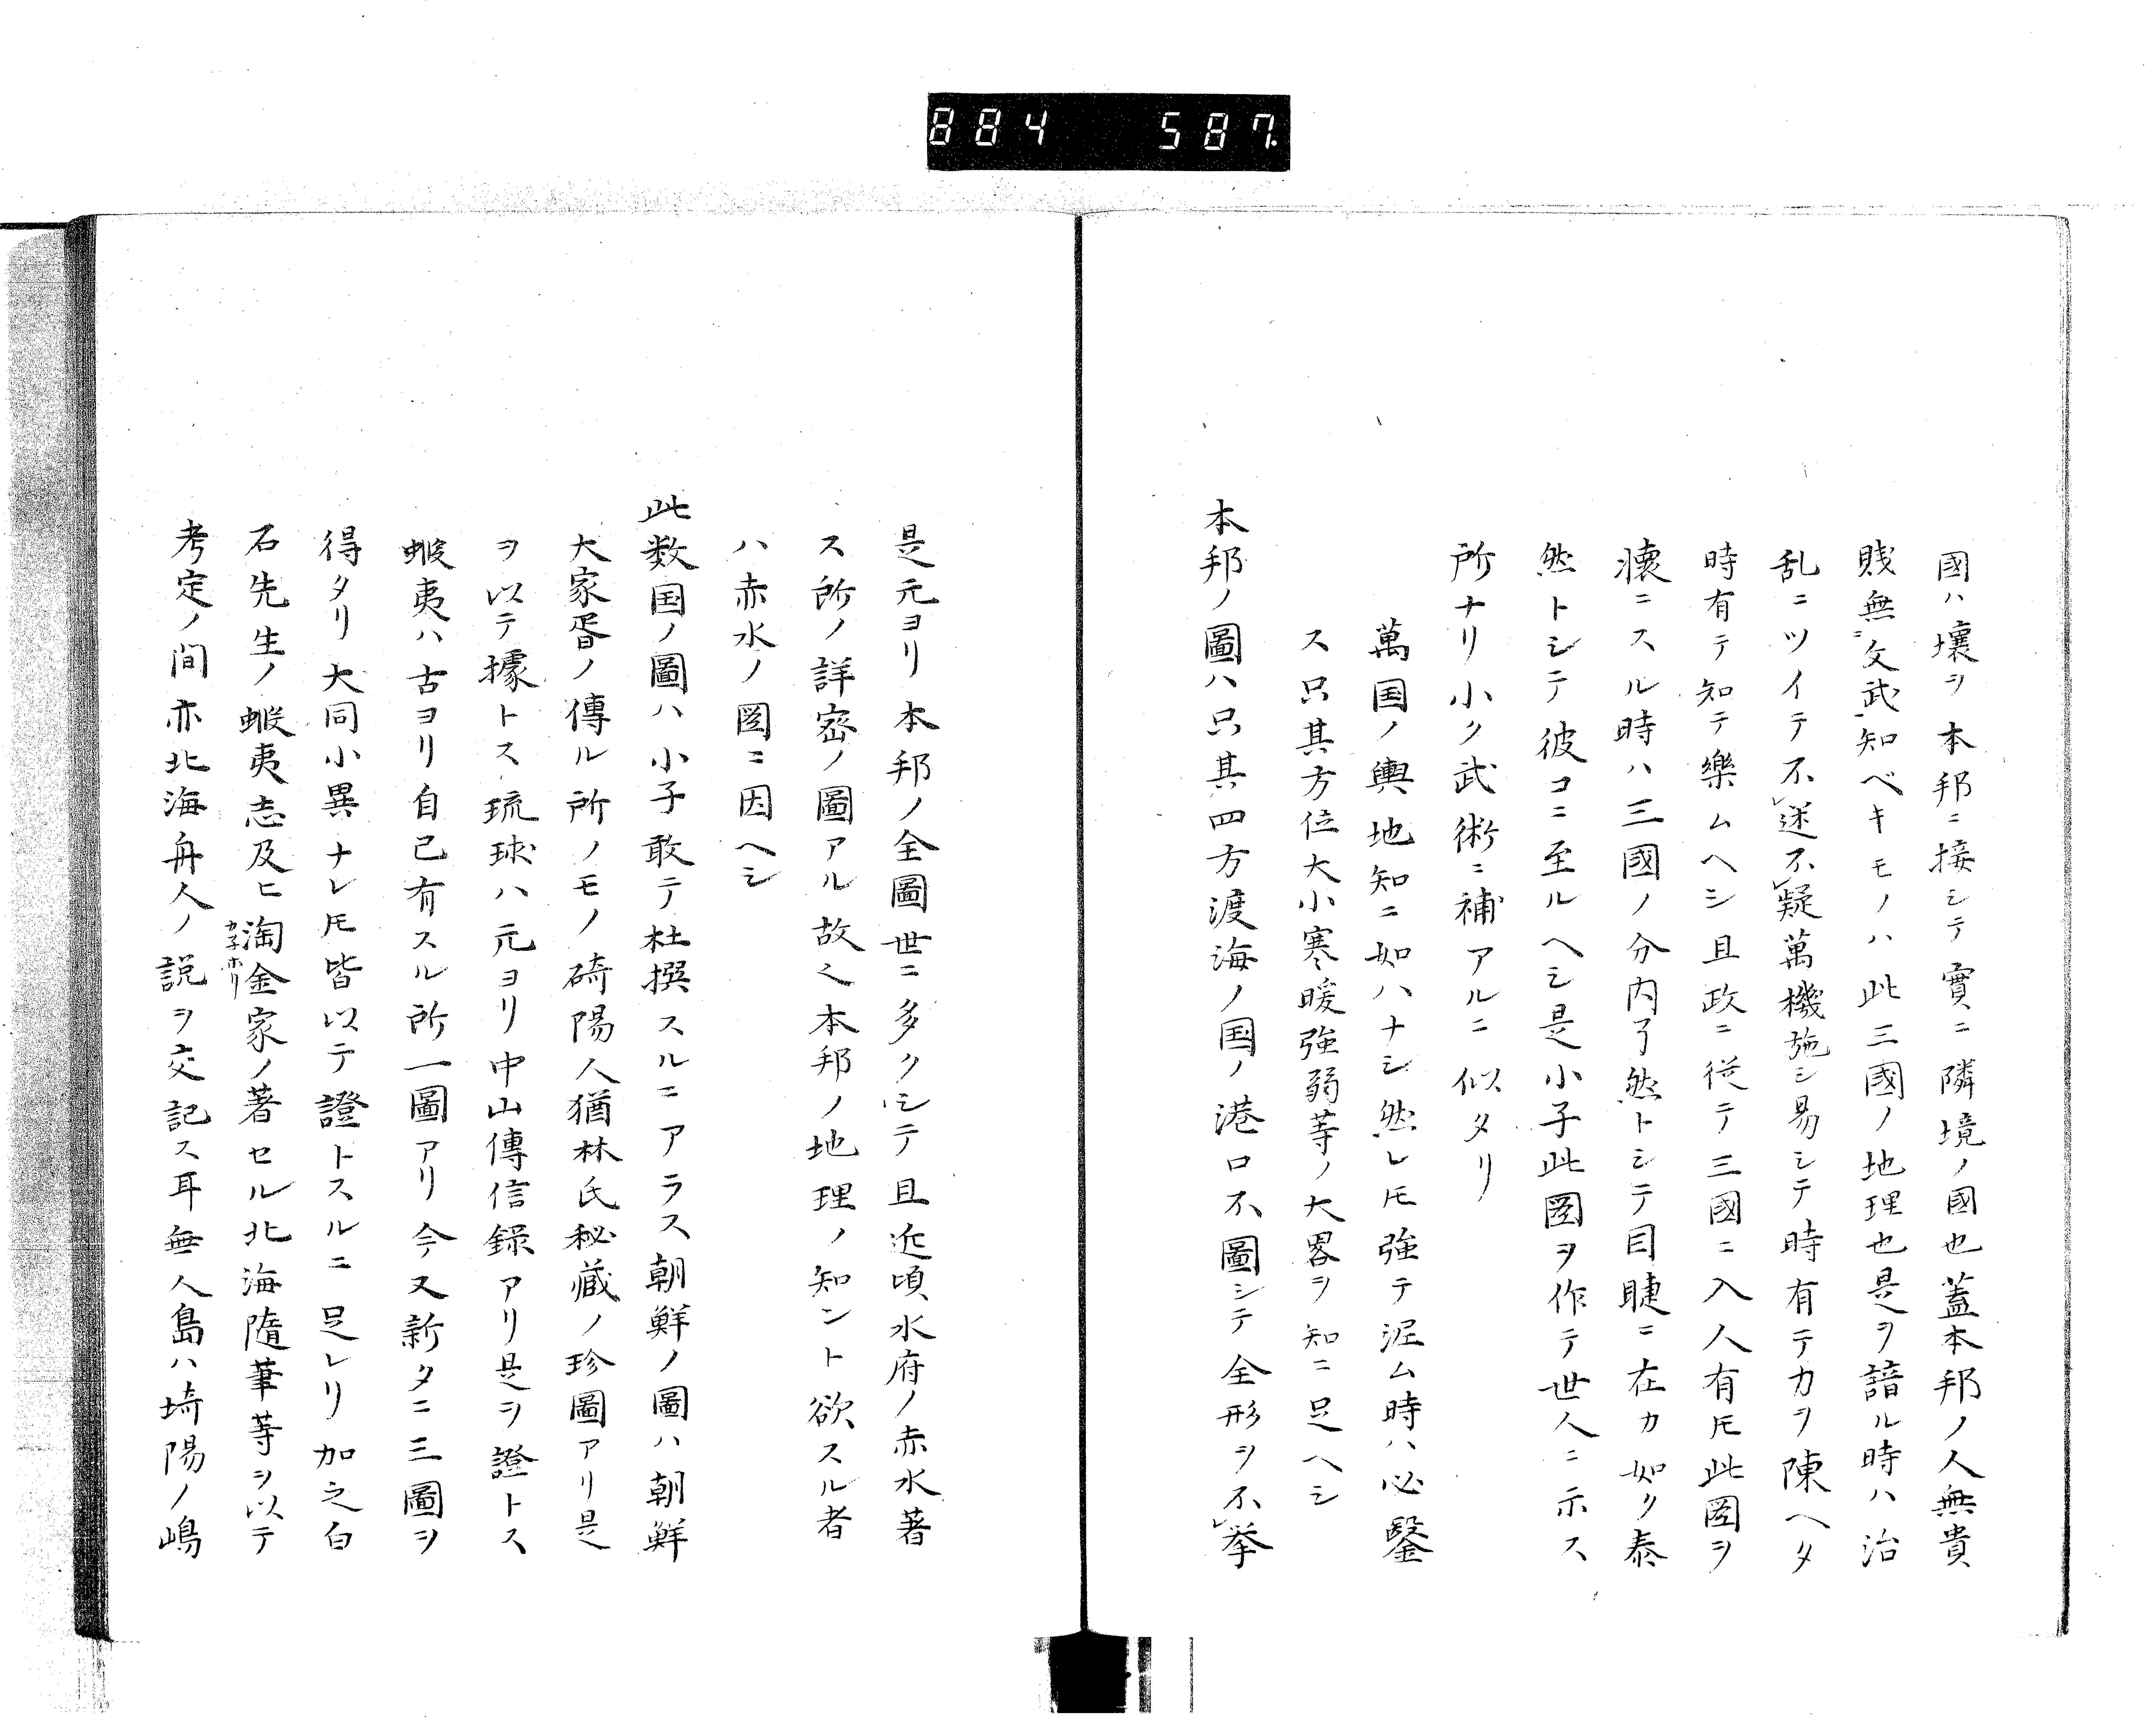 884 587.
國ハ壤ヲ本邦ニ接シテ實ニ隣境ノ國也蓋本邦ノ人無貴
賎無文武知ベキモノハ此三國ノ地理也是ヲ諳ル時ハ治
乱ニツイテ不迷不疑萬機施シ易シテ時有テカヲ陳ヘタ
時有テ知テ樂ムヘシ且政ニ従テ三國ニ入人有𪜈此圖ヲ
懐ニスル時ハ三國ノ分内了然トシテ目睫ニ在カ如ク泰
然トシテ彼コニ至ルヘシ是小子此圖ヲ作テ世人ニ示ス
所ナリ小ク武術ニ補アルニ似タリ
萬国ノ輿地知ニ如ハナシ然レ𪜈強テ泥ム時ハ必鑿
ス只其方位大小寒暖強弱等ノ大畧ヲ知ニ足ヘシ
本邦ノ圖ハ只其四方渡海ノ国ノ港口不圖シテ全形ヲ不レ挙
是元ヨリ本邦ノ全圖世ニ多クシテ且近頃水府ノ赤水著
ス所ノ詳密ノ圖アル故之本邦ノ地理ノ知ント欲スル者
ハ赤水ノ圖ニ因ヘシ
此数国ノ圖ハ小子敢テ杜撰スルニアラス朝鮮ノ圖ハ朝鮮
大家胥ノ傳ル所ノモノ碕陽人猶林氏秘藏ノ珍圖アリ是
ヲ以テ據トス琉球ハ元ヨリ中山傳信録アリ是ヲ證トス
蝦夷ハ古ヨリ自己有スル所一圖アリ今又新タニ三圖ヲ
得タリ大同小異ナレ𪜈皆以テ證トスルニ足レリ加之白
石先生ノ蝦夷志及ヒ淘金家ノ著セル北海隨筆等ヲ以テ
カネホリ
考定ノ間亦北海舟人ノ説ヲ交記ス耳無人島ハ埼陽ノ嶋